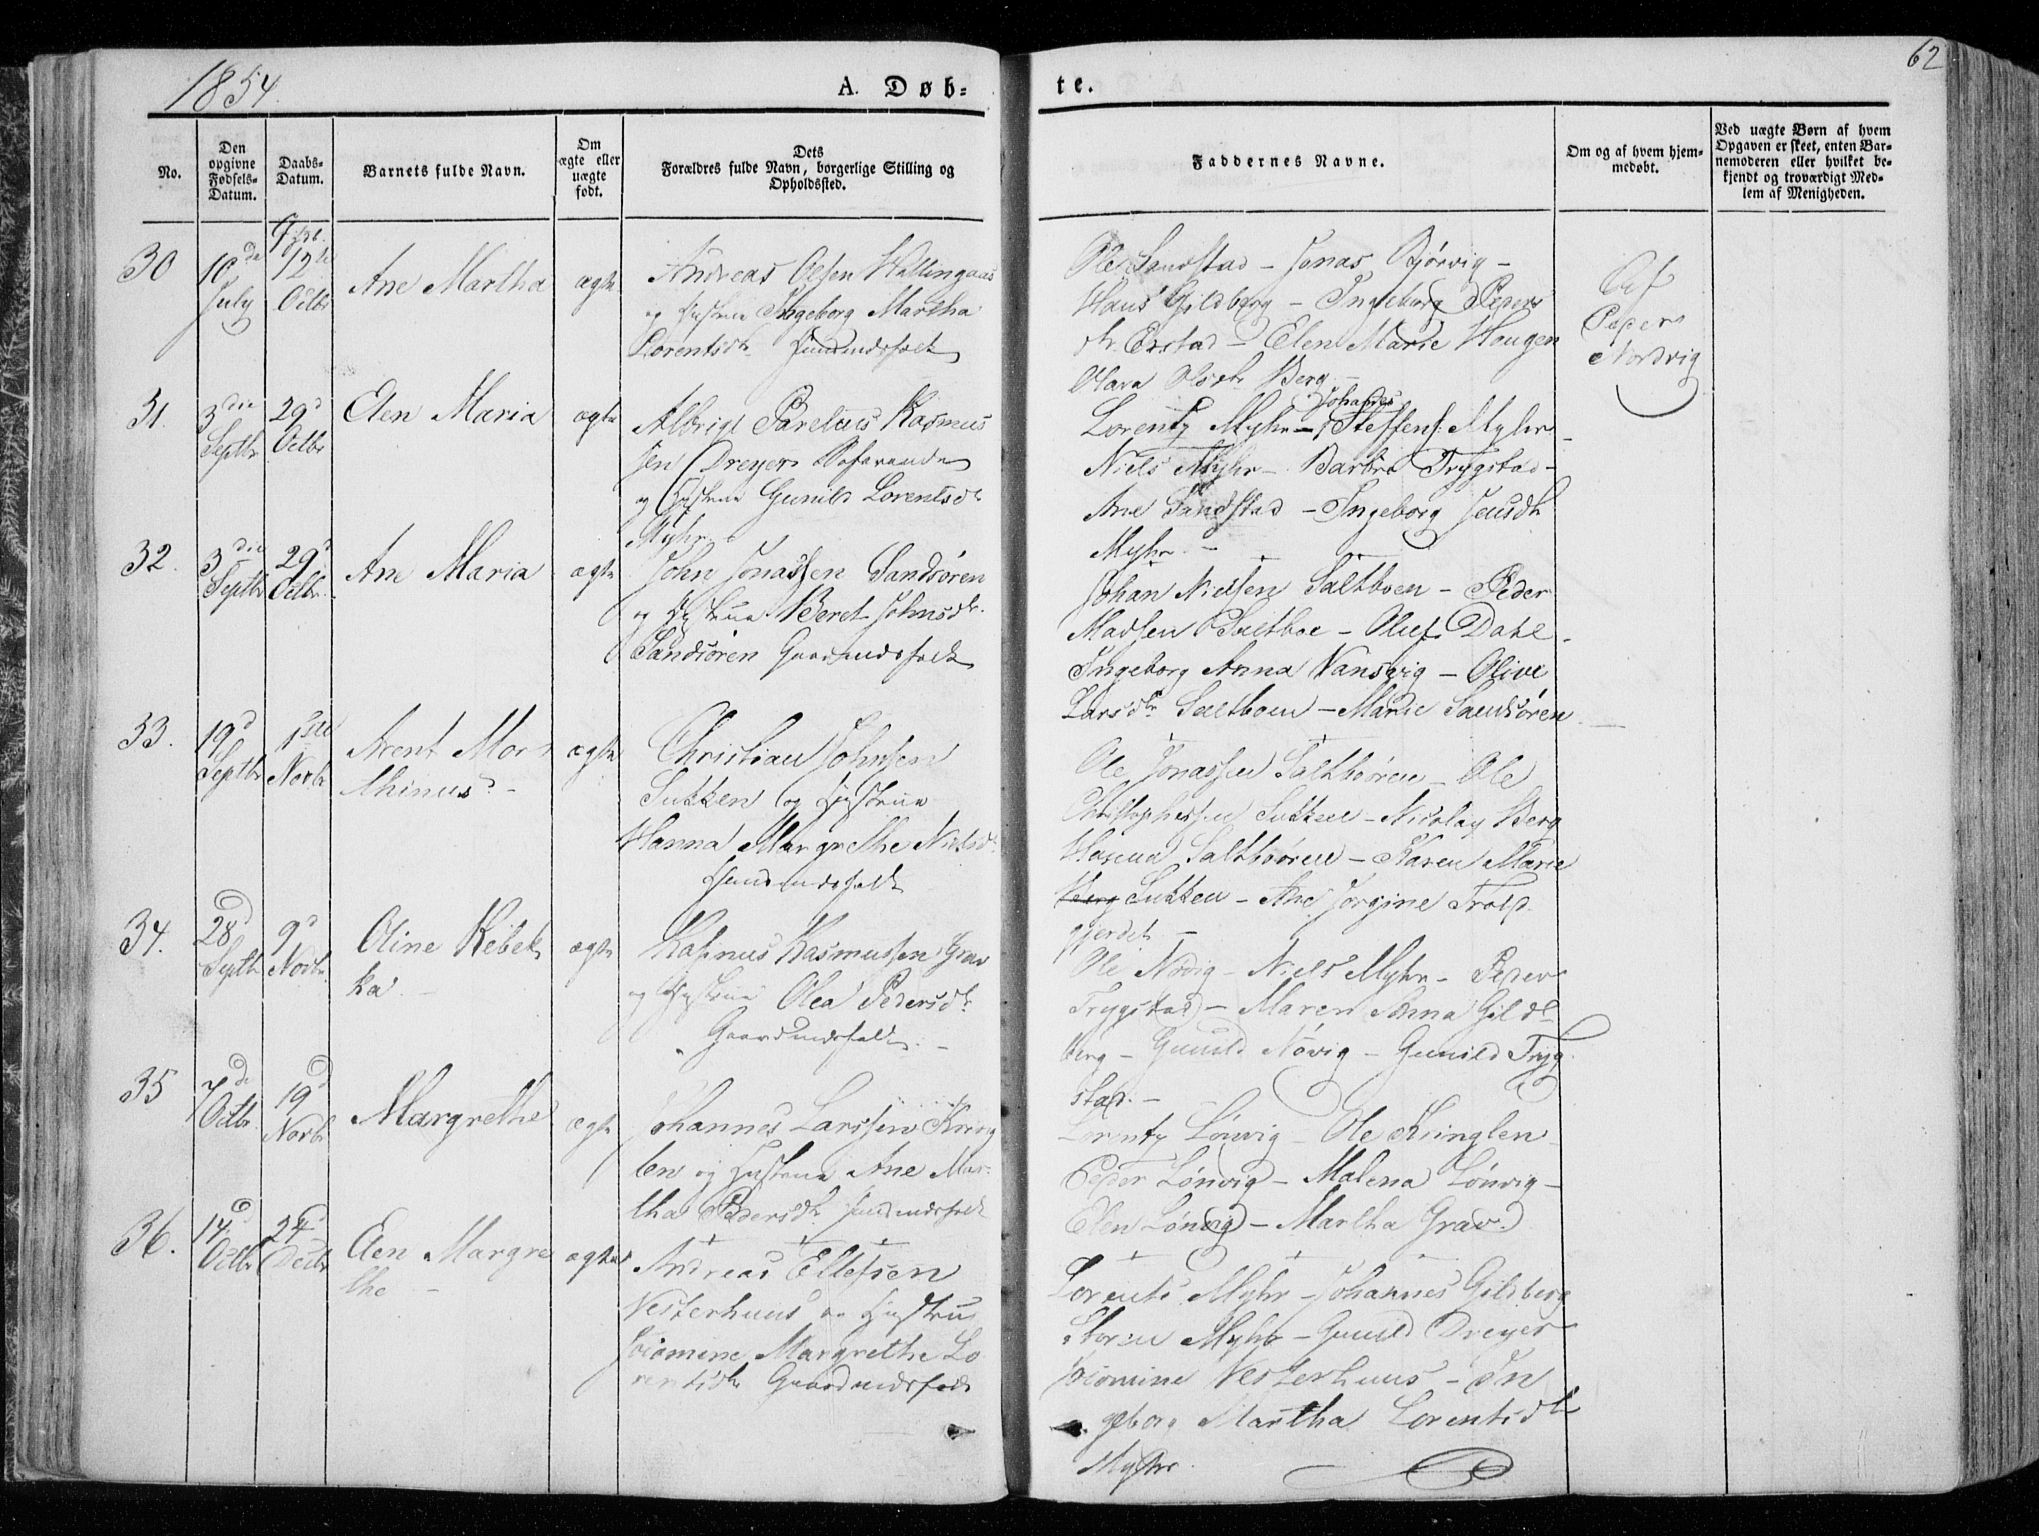 1854.
A. Døb=
te.
62
No.
Den opgivne Fødsels-Datum.
Daabs-Datum.
Barnets fulde Navn.
Om ægte eller uægte født.
Dets
Forældres fulde Navn, borgerlige Stilling og
Opholdssted.
Faddernes Navne.
Om og af hvem hjem-
medøbt.
Ved uægte Børn af hvem
Opgaven er skeet, enten Bar-
nemoderen eller hvilket be-
kjendt og troværdigt Med-
lem af Menigheden.
30
July
12te
Octbr
Ane Martha
ægte
Andreas Olsen Hallingaas
og Hustrue Ingeborg Martha
Lorentsdtr Huusmandsfolk
Ole Sandstad - Jonas Bjørvig -
Hans Gildberg - Ingeborg Peders
dtr. Erstad - Elen Marie Hougen
Olava Olsdtr Berg -
Af
Peder
Nordvig
31.
3die
Septbr
29d
Octbr
Elen Maria
ægte
Albrigt Parelius Rasmus
sen Dreyer
og Hustrue Gunild Lorentsdtr
Myhr
Johanes
Lorentz Myhr - Steffens. Myhr
Niels Myhr - Barbra Trygstad -
Ane Sandstad - Ingeborg Jensdtr
Myhr. -
32.
3die
Septbr
29d
Octbr.
Ane Maria
ægte
John Jonassen Sandsören
og Hustrue Beret Johnsdtr.
Sandsören Gaardmandsfolk
Johan Nielsen Saltboen - Peder
Madsen Saltboe - Oluf Dahl -
Ingeborg Anna Vansvig - Olive
Larsdtr Saltboen - Marie Sandsören
33.
19d
Septbr
1ste
Novbr
Arent Mor-
thinus -
ægte
Christian Johnsen
Sukken og Hustrue
Hanna Margrethe Nielsdtr
Huusmandsfolk
Ole Jonassen Saltboören - Ole
Christophersen Sukken - Nicolay Berg
Saltboören - Karen Marie
Berg Sukken - Ane Jorgine Trolp.
gjerdet -
34.
28d
Septbr
9d
Novbr.
Oline Rebek
ka. -
ægte
Rasmus Rasmussen Grav
og Hustrue Olea Pedersdtr.
Gaardmandsfolk. -
Ole Növig - Niels Myhr - Peder
Trygstad - Maren Anna Gild
berg - Gunild Növig - Gunild Tryg.
stad. -
35
7de
Octbr.
19d
Novbr
Margrethe
ægte
Johannes Larssen Kring
len og Hustrue Ane Mar-
tha Pedersdtr. Huusmandsfolk
Lorentz Lönvig - Ole Kringlen
Peder Lönvig - Malena Lönvig -
Elen Lönvig - Martha Grav.
36.
14d
Octbr
24d
Decbr
Elen Margre
the -
ægte
Andreas Ellefsen
Vesterhuus og Hustrue
Joiomine Margrethe Lo
rentsdtr Gaardmandsfolk
Lorents Myhr - Johannes Gildberg
Myhr - Gunild Dreyer
Joiomine Vesterhuus - In
geborg Martha Lorentsdtr
Myhr.